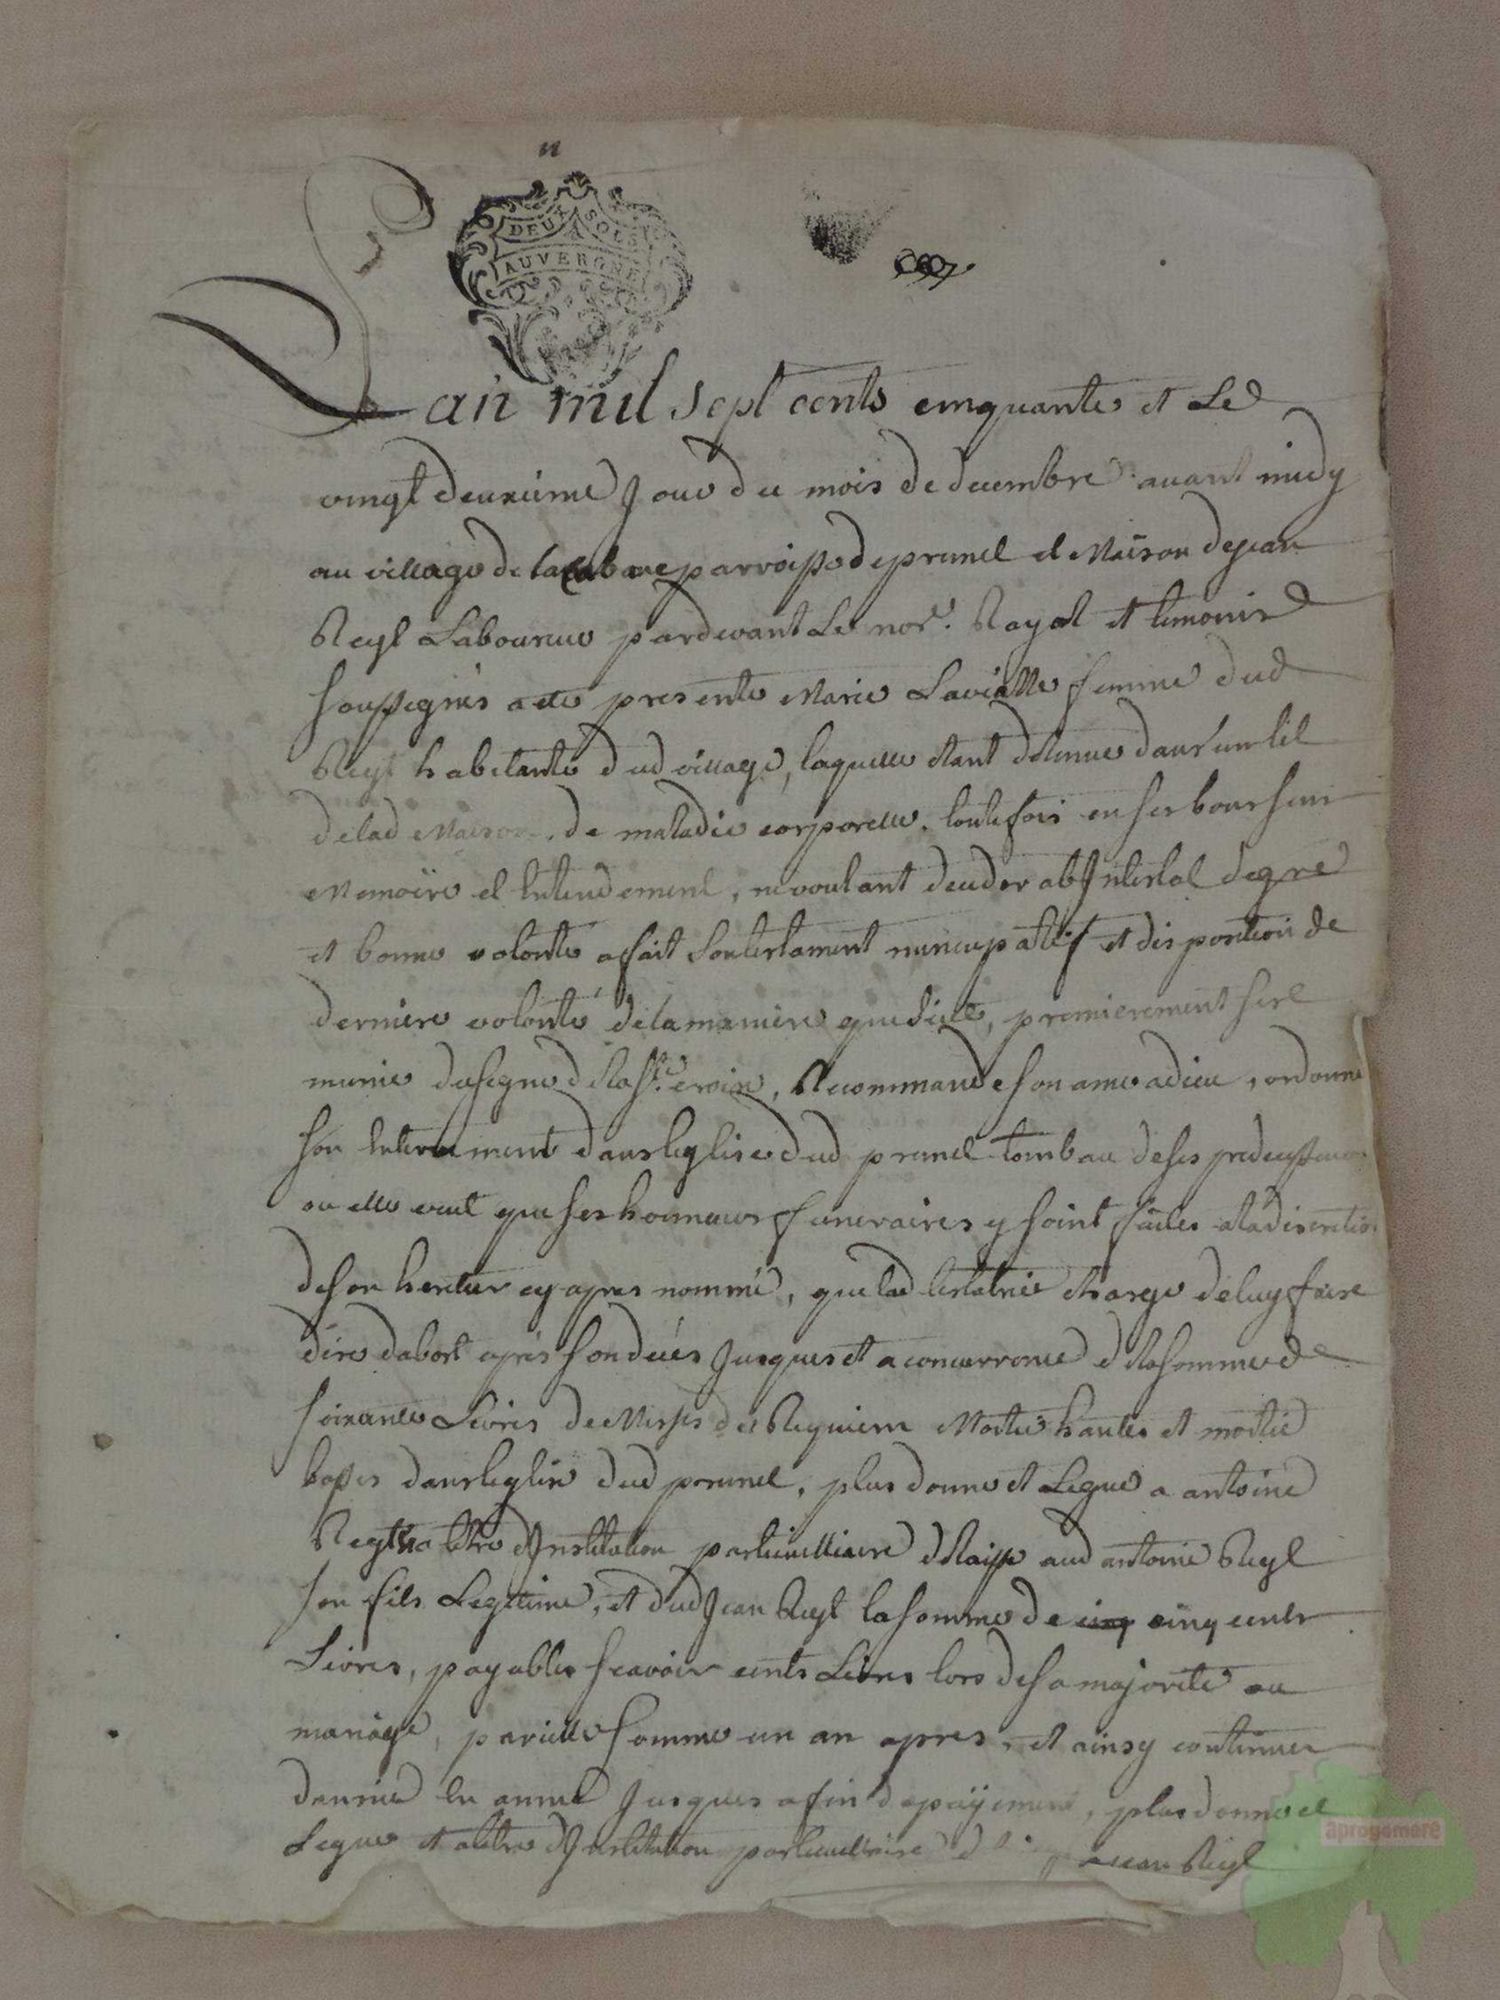 DEUX SOLS
AUVERGNE
Lan mil sept cents cinquante et Le
vingt deuxieme Jour du mois de decembre avant midy
au village de parroisse de prunet et Maison de jean
Reyt Laboureur pardevant Le nore. Royal et temoins
soussegnés a ete presente Marie Lavialle femme dud
Reyt habitante dud village, laquelle etant detenue dans un lit
de lad Maison, de maladie corporelle, toutefois en ses bons sens
Memoire et Entendement, ne voulant deceder abIntestat de gre
et bonne volonte a fait son testament nuncupatif et disposition de
derniere volonté de la maniere que suit, premierement sest
munie du segne de la Ste croix, Recommande son ame a dieu, ordonne
son Enterrement dans leglise dud prunet tombau de ses predecesseurs
ou elle veut que ses honneurs funeraires y soint faites a la discretion
de son heritier cy apres nommé, que lad testatrice charge de luy faire
dire dabort apres son deces Jusques et a concurrance de la somme de
soixante Livres de Messes de Requiem Moitié hautes et moitié
basses dans leglise dud prunet, plus donne et Legue a antoine
Reyt a titre dInstitution particulliaire aud antoine Reyt
son fils Legitime, et dud Jean Reyt la somme de cinq cents
Livres, payables scavoir cents Livres lors de sa majorité ou
mariage, pareille somme un an apres, et ainsy continuer
dannée En année Jusques a fin de payement, plus donne et
Legue et dInstitution particulliaire jean Reyt
aprogemere